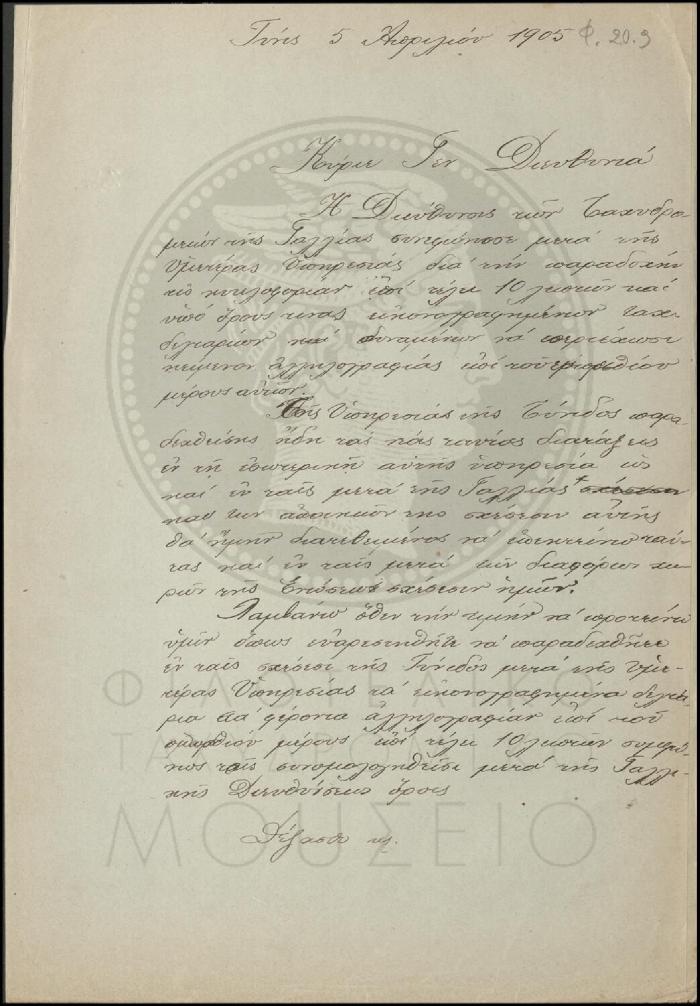 Τύνις 5 Απριλίου 1905 Φ. 20.9
Κύριε Γεν Διευθυντά
Η Διεύθυνσις των Ταχυδρο
μείων της Γαλλίας συνεφώνησε μετά της
Υμετέρας Υπηρεσίας διά την παραδοχήν
εις κυκλοφορίαν επί τέλει 10 λεπτών και
υπό όρους τινας εικονογραφημένων ταχ.
δελταρίων και δυναμένων να περιέχωσι
κείμενον αλληλογραφίας επί του
μέρους αυτών.
Της Υπηρεσίας της Τύνιδος παρα-
δεχθείσης ήδη τας διατάξεις
εν τη εσωτερική αυτής υπηρεσία ως
και εν ταις μετά της Γαλλίας
και των αποικιών της σχέσεσιν αυτής
θα ήμην διατεθειμένος να επεκτείνω ταύ-
τας και εν ταις μετά των διαφόρων χω-
ρών της Ενώσεως σχέσεσιν ημών.
Λαμβάνω όθεν την τιμήν να προτείνω
υμίν όπως ευαρεστηθήτε να παραδεχθήτε
εν ταις σχέσεσι της Τύνιδος μετά της υμε-
τέρας Υπηρεσίας τα εικονογραφημένα δελτά-
ρια τα φέροντα αλληλογραφίαν επί του
μέρους επί τέλει 10 λεπτών συμφώ-
νως τοις συνομολογηθείσι μετά της Γαλλι-
κής Διευθύνσεως όροις
Δέξασθε κτλ.
ΦΙΛΟΤΕΛΙΚΟ
ΤΑΧΥΔΡΟΜΙΚΟ
ΜΟΥΣΕΙΟ